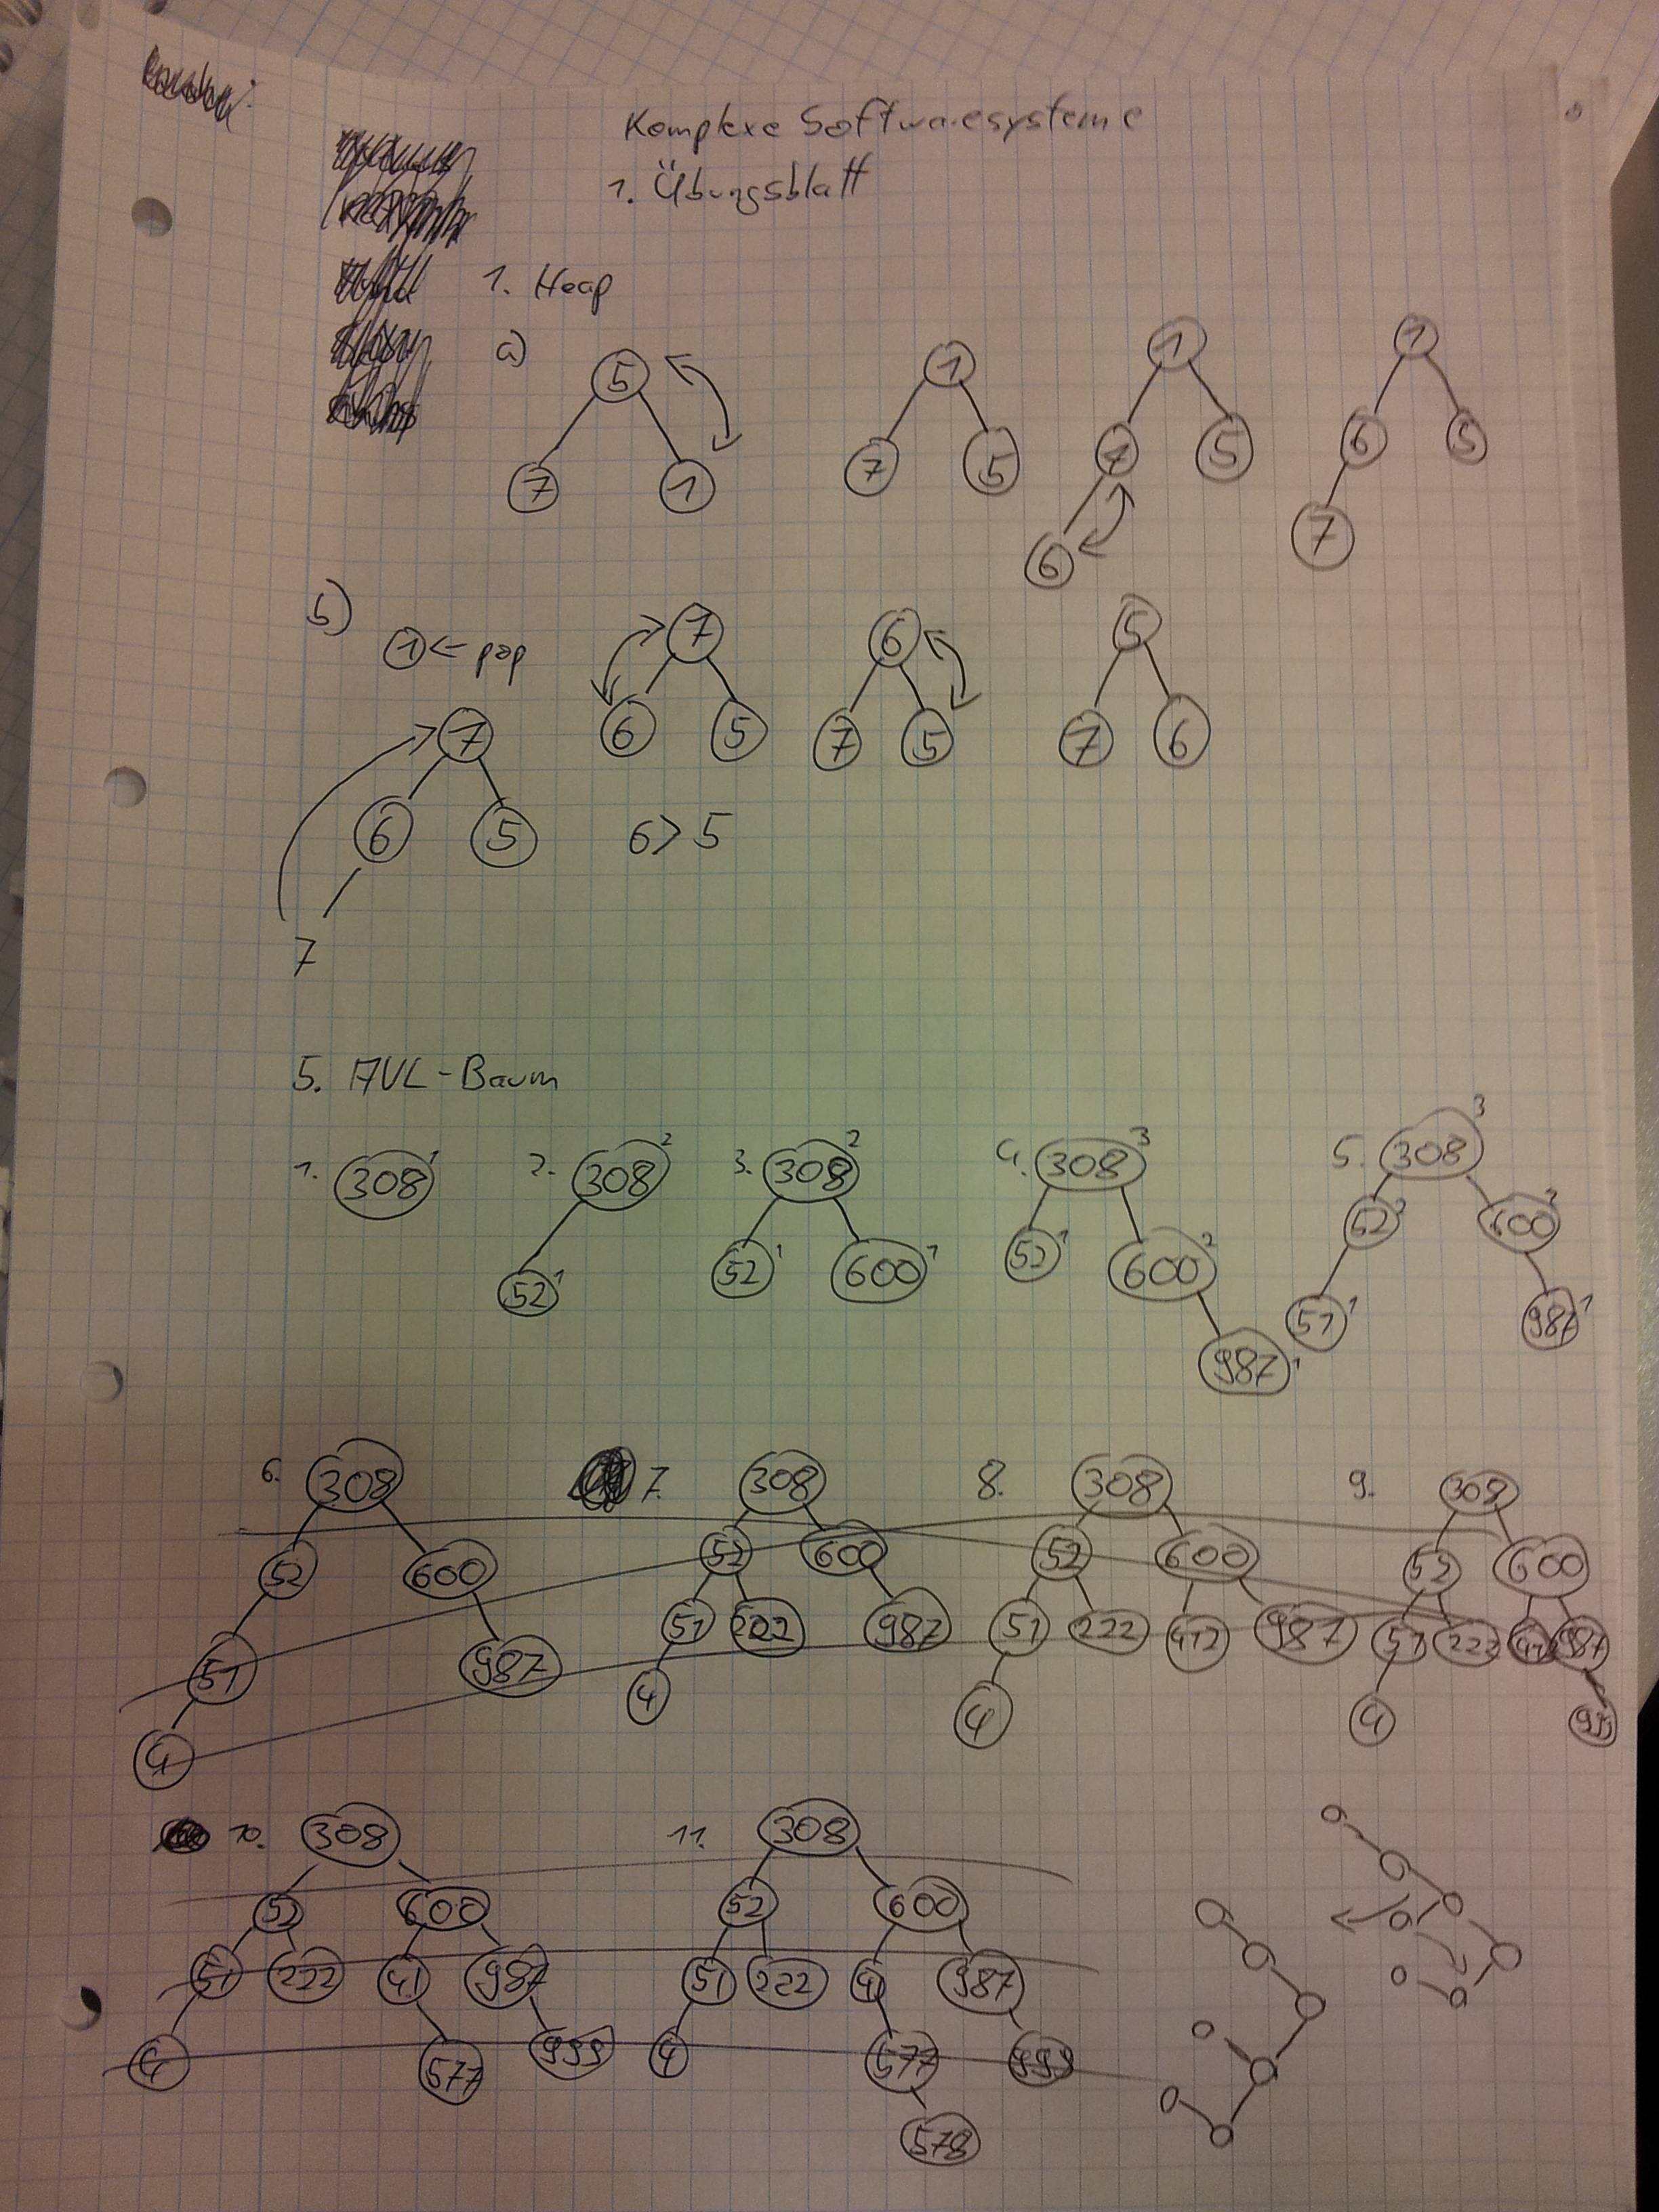 Komplexe Softwaresysteme
1. Übungsblatt
1. Heap
a)
5
7 1
1
7 5
1
7 5
6
1
6 5
7
b)
1 ← pop
7
6 5
7
7
6 5
6 > 5
6
7 5
5
7 6
5. AVL-Baum
1. 308 1
2. 308 2
52 1
3. 308 2
52 1 600 1
4. 308 3
52 1 600 2
987 1
5. 308 3
52 2 600 2
51 1 987 1
6. 308
52 600
51 987
4
7. 308
52 600
51 222 987
4
8. 308
52 600
51 222 412 987
4
9. 308
52 600
51 222 987
4 999
10. 308
52 600
51 222 41 987
4 577 999
11. 308
52 600
51 222 41 987
4 577 999
578